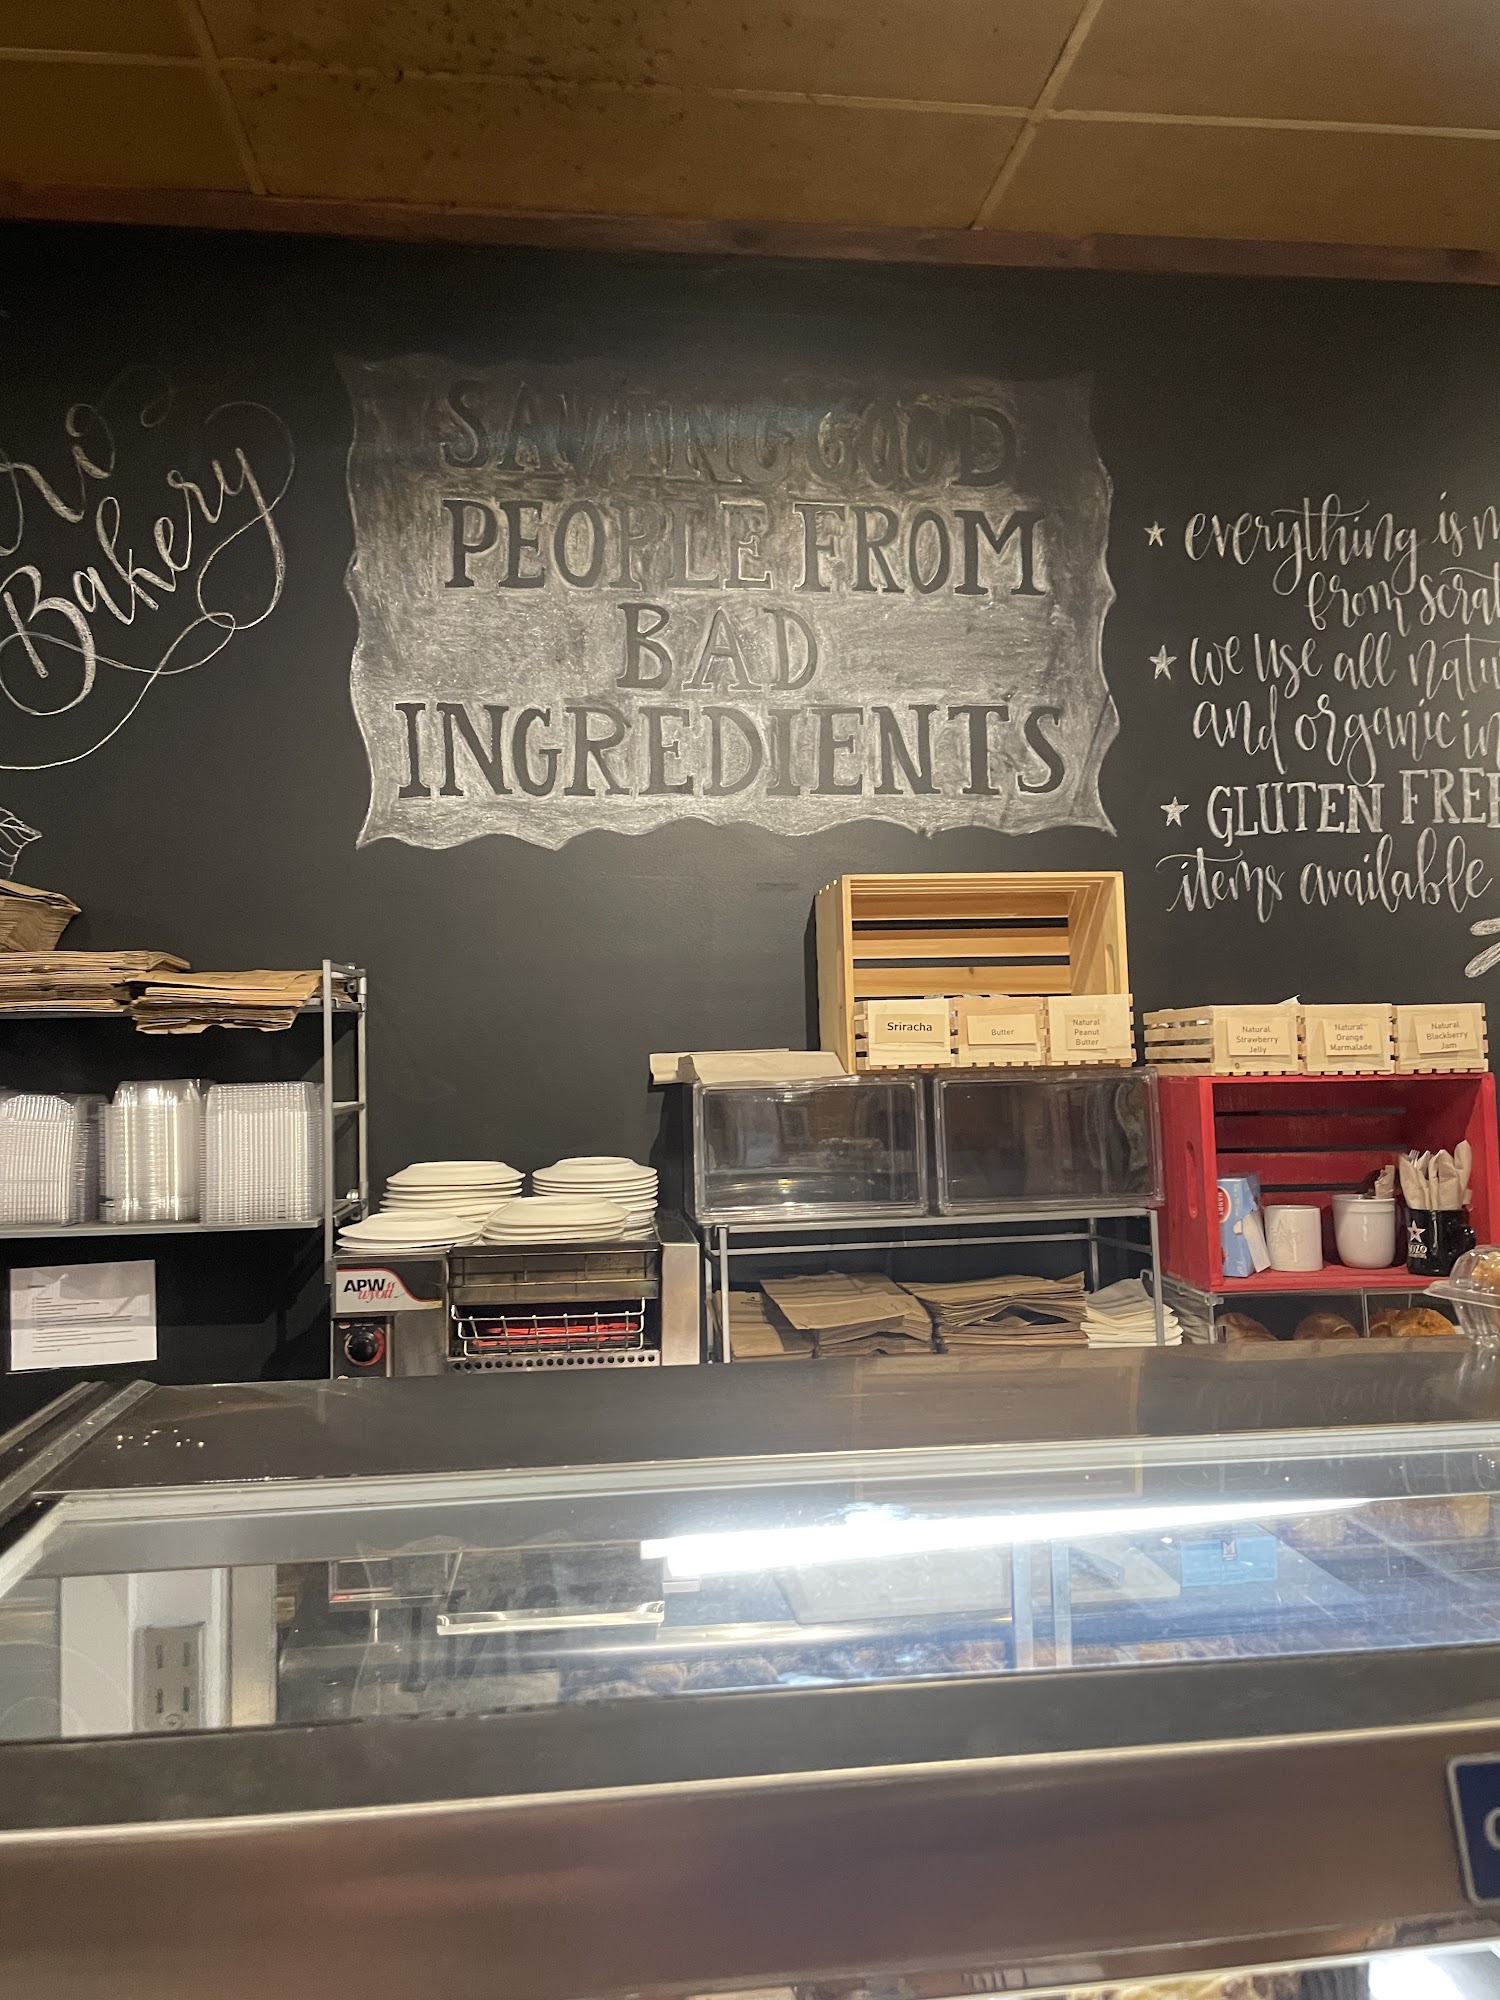 Bakery
SAVING GOOD
PEOPLE FROM
BAD
INGREDIENTS
everything is
from
we use all
and organic
GLUTEN FREE
items available
Sriracha
Butter
Natural
Peanut
Butter
Natural
Strawberry
Jelly
Natural
Orange
Marmalade
Natural
Blackberry
Jam
APW
wyott